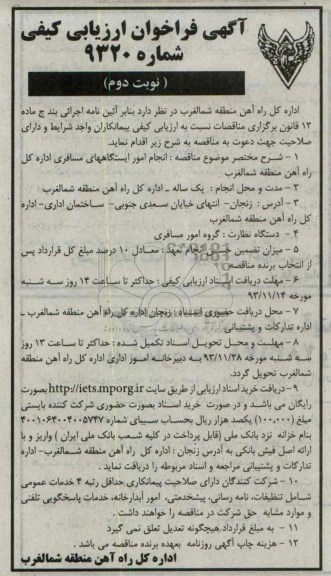 آگهی فراخوان ارزیابی کیفی
شماره ۹۳۲۰
( نوبت دوم )
اداره کل راه آهن منطقه شمالغرب در نظر دارد بنابر آئین نامه اجرائی بند ج ماده
۱۲ قانون برگزاری مناقصات نسبت به ارزیابی کیفی پیمانکاران واجد شرایط و دارای
صلاحیت جهت دعوت به مناقصه به شرح زیر اقدام نماید.
۱ - شرح مختصر موضوع مناقصه : انجام امور ایستگاههای مسافری اداره کل
راه آهن منطقه شمالغرب
۲ - مدت و محل انجام : یک ساله - اداره کل راه آهن منطقه شمالغرب
۳ - آدرس : زنجان- انتهای خیابان سعدی جنوبی- ساختمان اداری- اداره
کل راه آهن منطقه شمالغرب
۴ - دستگاه نظارت : گروه امور مسافری
۵ - میزان تضمین انجام تعهد : معادل ۱۰ درصد مبلغ کل قرارداد پس
از انتخاب برنده مناقصه
۶ - مهلت دریافت اسناد ارزیابی کیفی : حداکثر تا ساعت ۱۴ روز سه شنبه
مورخه ۹۳/۱۱/۱۴
۷ - محل دریافت حضوری اسناد : زنجان اداره کل راه آهن منطقه شمالغرب -
اداره تدارکات و پشتیبانی
۸ - مهلت و محل تحویل اسناد تکمیل شده : حداکثر تا ساعت ۱۳ روز
سه شنبه مورخه ۹۳/۱۱/۲۸ به دبیرخانه امور اداری اداره کل راه آهن منطقه
شمالغرب تحویل گردد.
۹ - دریافت خرید اسناد ارزیابی از طریق سایت http://iets.mporg.ir بصورت
رایگان می باشد و در صورت خرید اسناد بصورت حضوری شرکت کننده بایستی
مبلغ (۱۰۰,۰۰۰) یکصد هزار ریال بحساب سیبای شماره ۴۰۰۱۰۶۳۰۰۴۰۰۵۷۴۷
بنام خزانه نزد بانک ملی (قابل پرداخت در کلیه شعب بانک ملی ایران ) واریز و با
ارائه اصل فیش بانکی به آدرس زنجان : اداره کل راه آهن منطقه شمالغرب- اداره
تدارکات و پشتیبانی مراجعه و اسناد مربوطه را دریافت نماید .
۱۰ - شرکت کنندگان دارای صلاحیت پیمانکاری حداقل رتبه ۴ خدمات عمومی
شامل تنظیفات، نامه رسانی، پیشخدمتی، امور آبدارخانه، خدمات پاسخگویی تلفنی
و موارد مشابه حق شرکت در مناقصه را خواهند داشت .
۱۱ - به مبلغ قرارداد هیچگونه تعدیل تعلق نمی گیرد
۱۲ - هزینه چاپ آگهی روزنامه بعهده برنده مناقصه می باشد .
اداره کل راه آهن منطقه شمالغرب